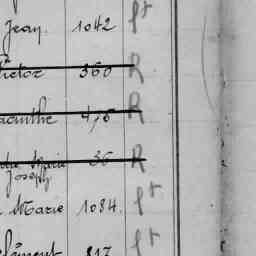 Jean. 1042 pt
Victor 360 R
acinthe 476 R
Marie 36 R
Joseph
Marie 1084. pt
lément 817 pt